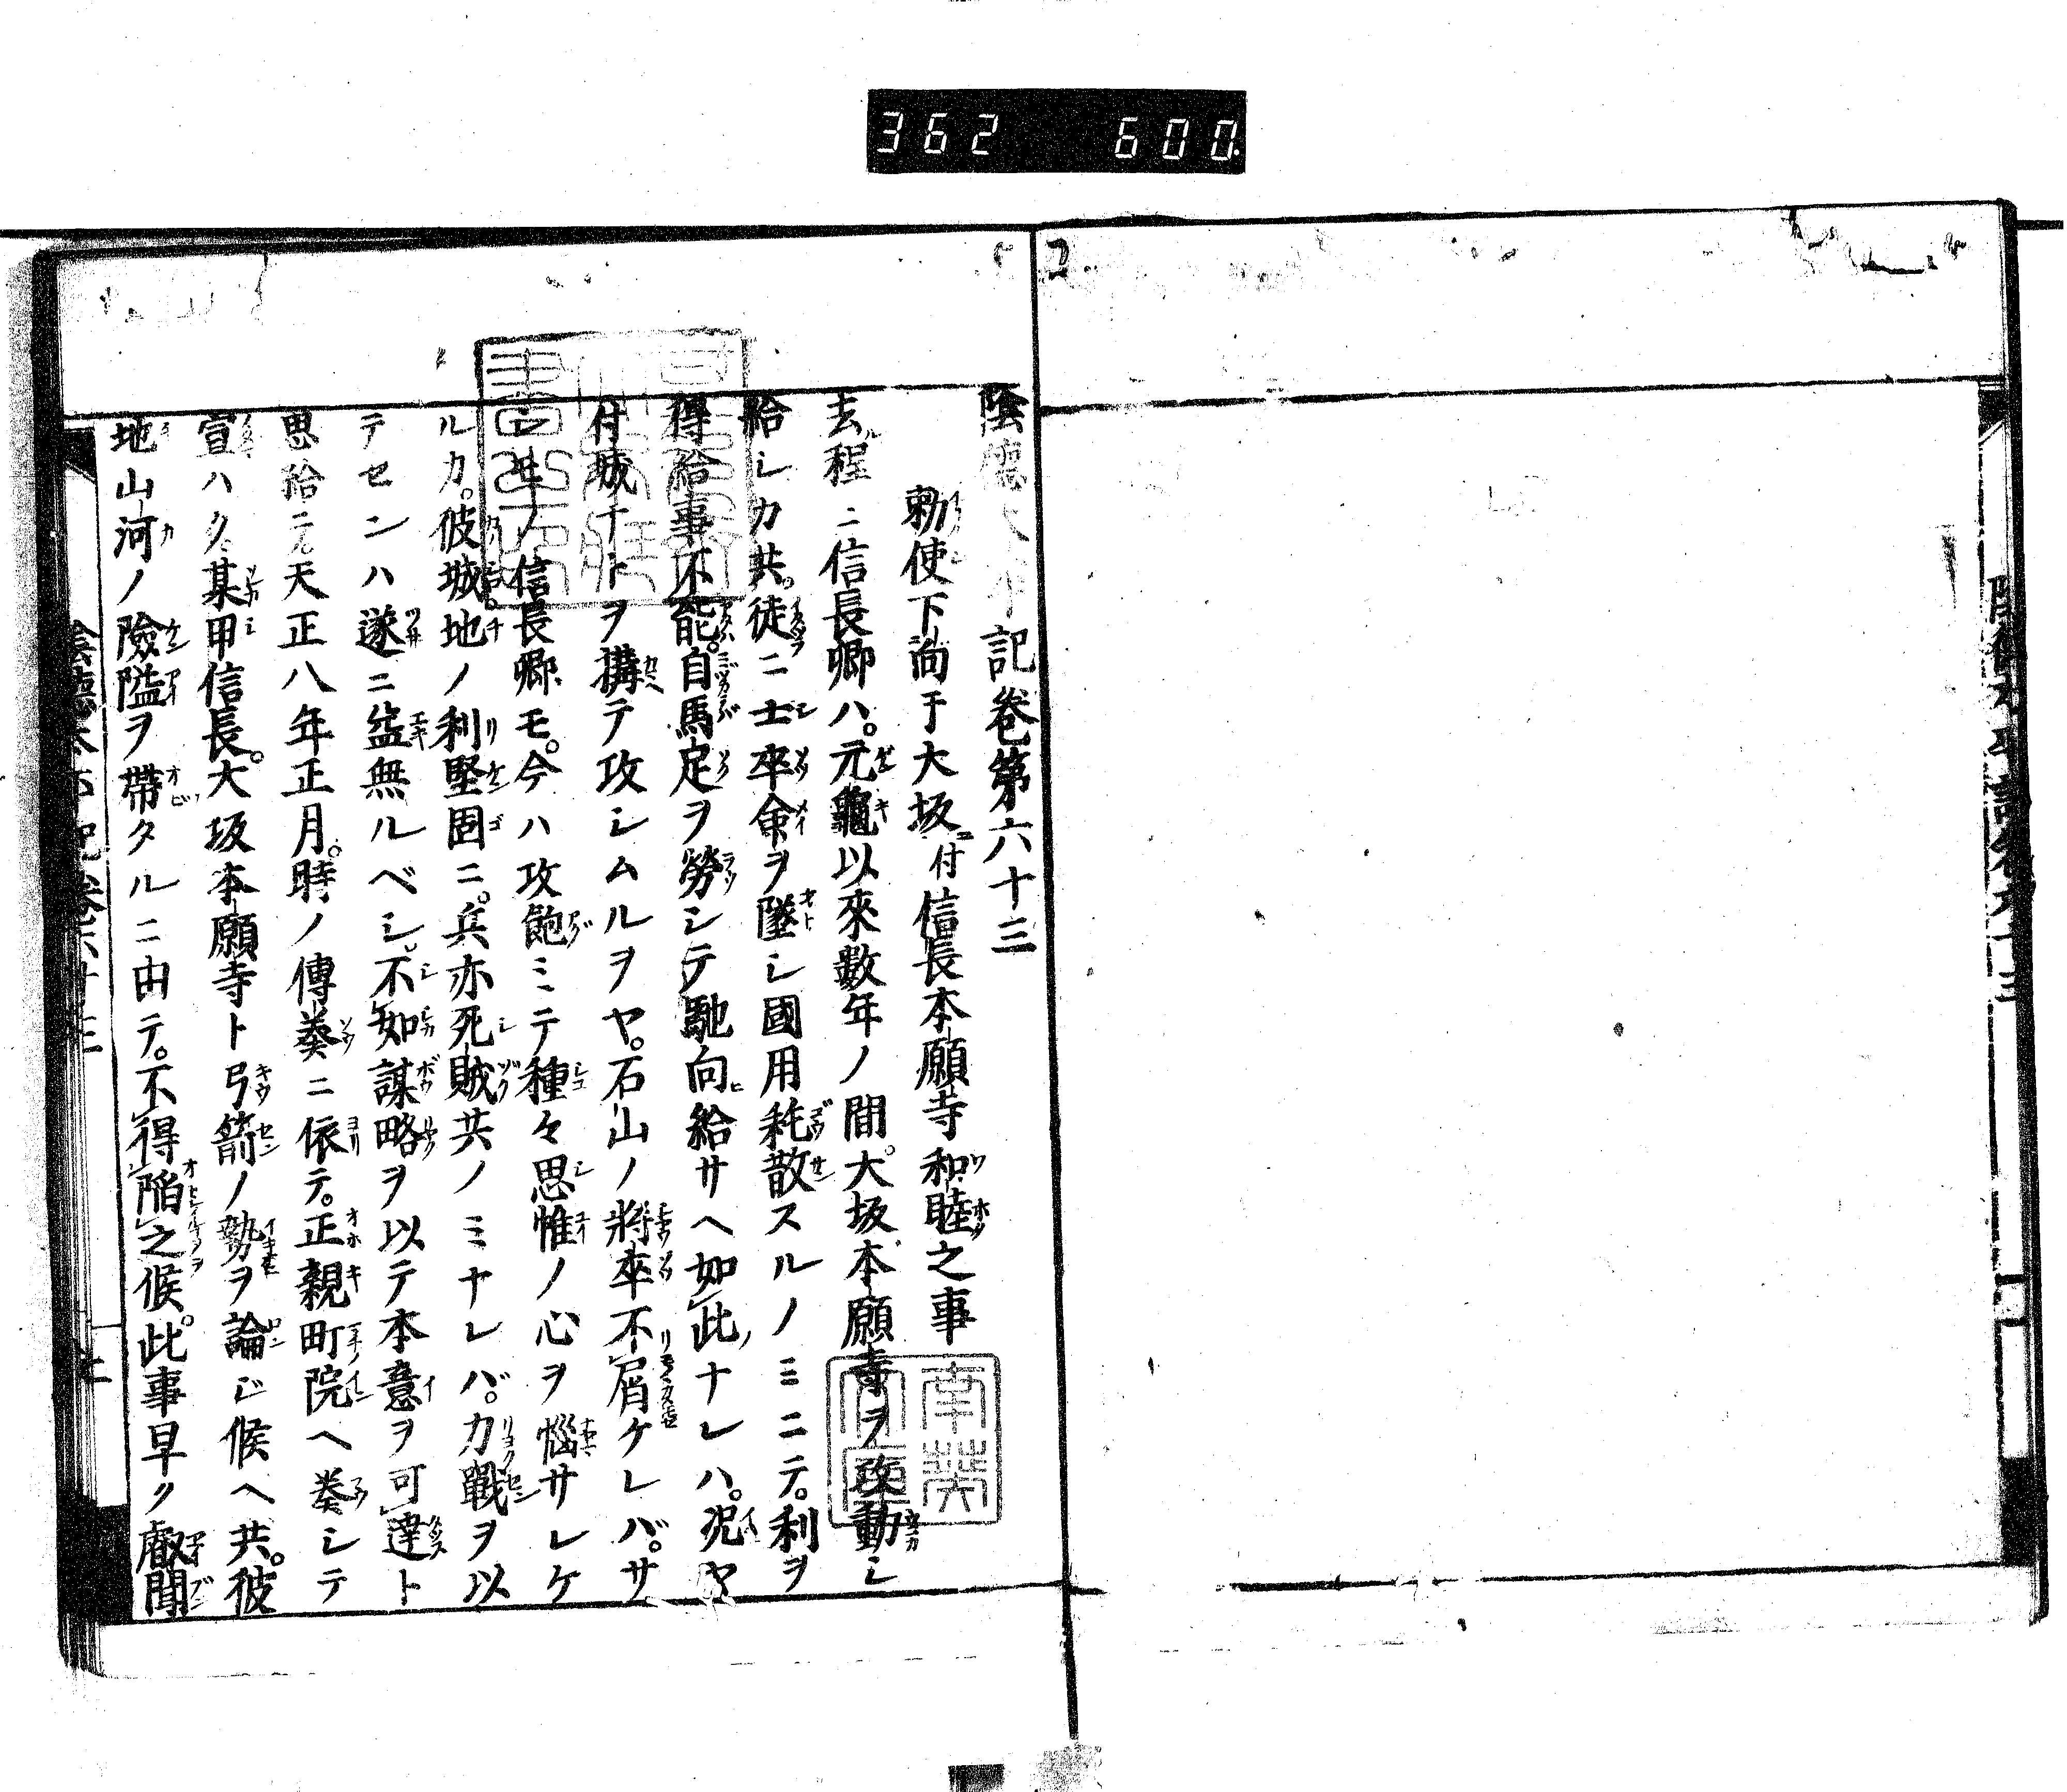 362 600.
陰德太平記卷第六十三
勅使下向于大坂付信長本願寺和睦之事
去程ニ信長卿ハ。元龜以來數年ノ間。大坂本願寺ヲ攻動シ
給シカ共。徒ニ士卒命ヲ墜シ國用耗散スルノミニテ。利ヲ
得給事不能。自馬足ヲ勞シテ馳向給サヘ如此ナレハ。况ヤ
付城ナトヲ構テ攻シムルヲヤ。石山ノ將卒不屑ケレバ。サ
シモノ信長卿モ。今ハ攻飽ミテ種々思惟ノ心ヲ惱サレケ
ルカ。彼城地ノ利堅固ニ。兵亦死賊共ノミナレバ。力戰ヲ以
テセンハ遂ニ益無ルベシ。不如謀略ヲ以テ本意ヲ可達ト
思給ニ。天正八年正月。時ノ傳奏ニ依テ。正親町院ヘ奏シテ
宣ハク。某甲信長。大坂本願寺ト弓箭ノ勢ヲ論ジ候ヘ共。彼
地山河ノ險隘ヲ帶タルニ由テ。不得陷之候。此事早ク叡聞